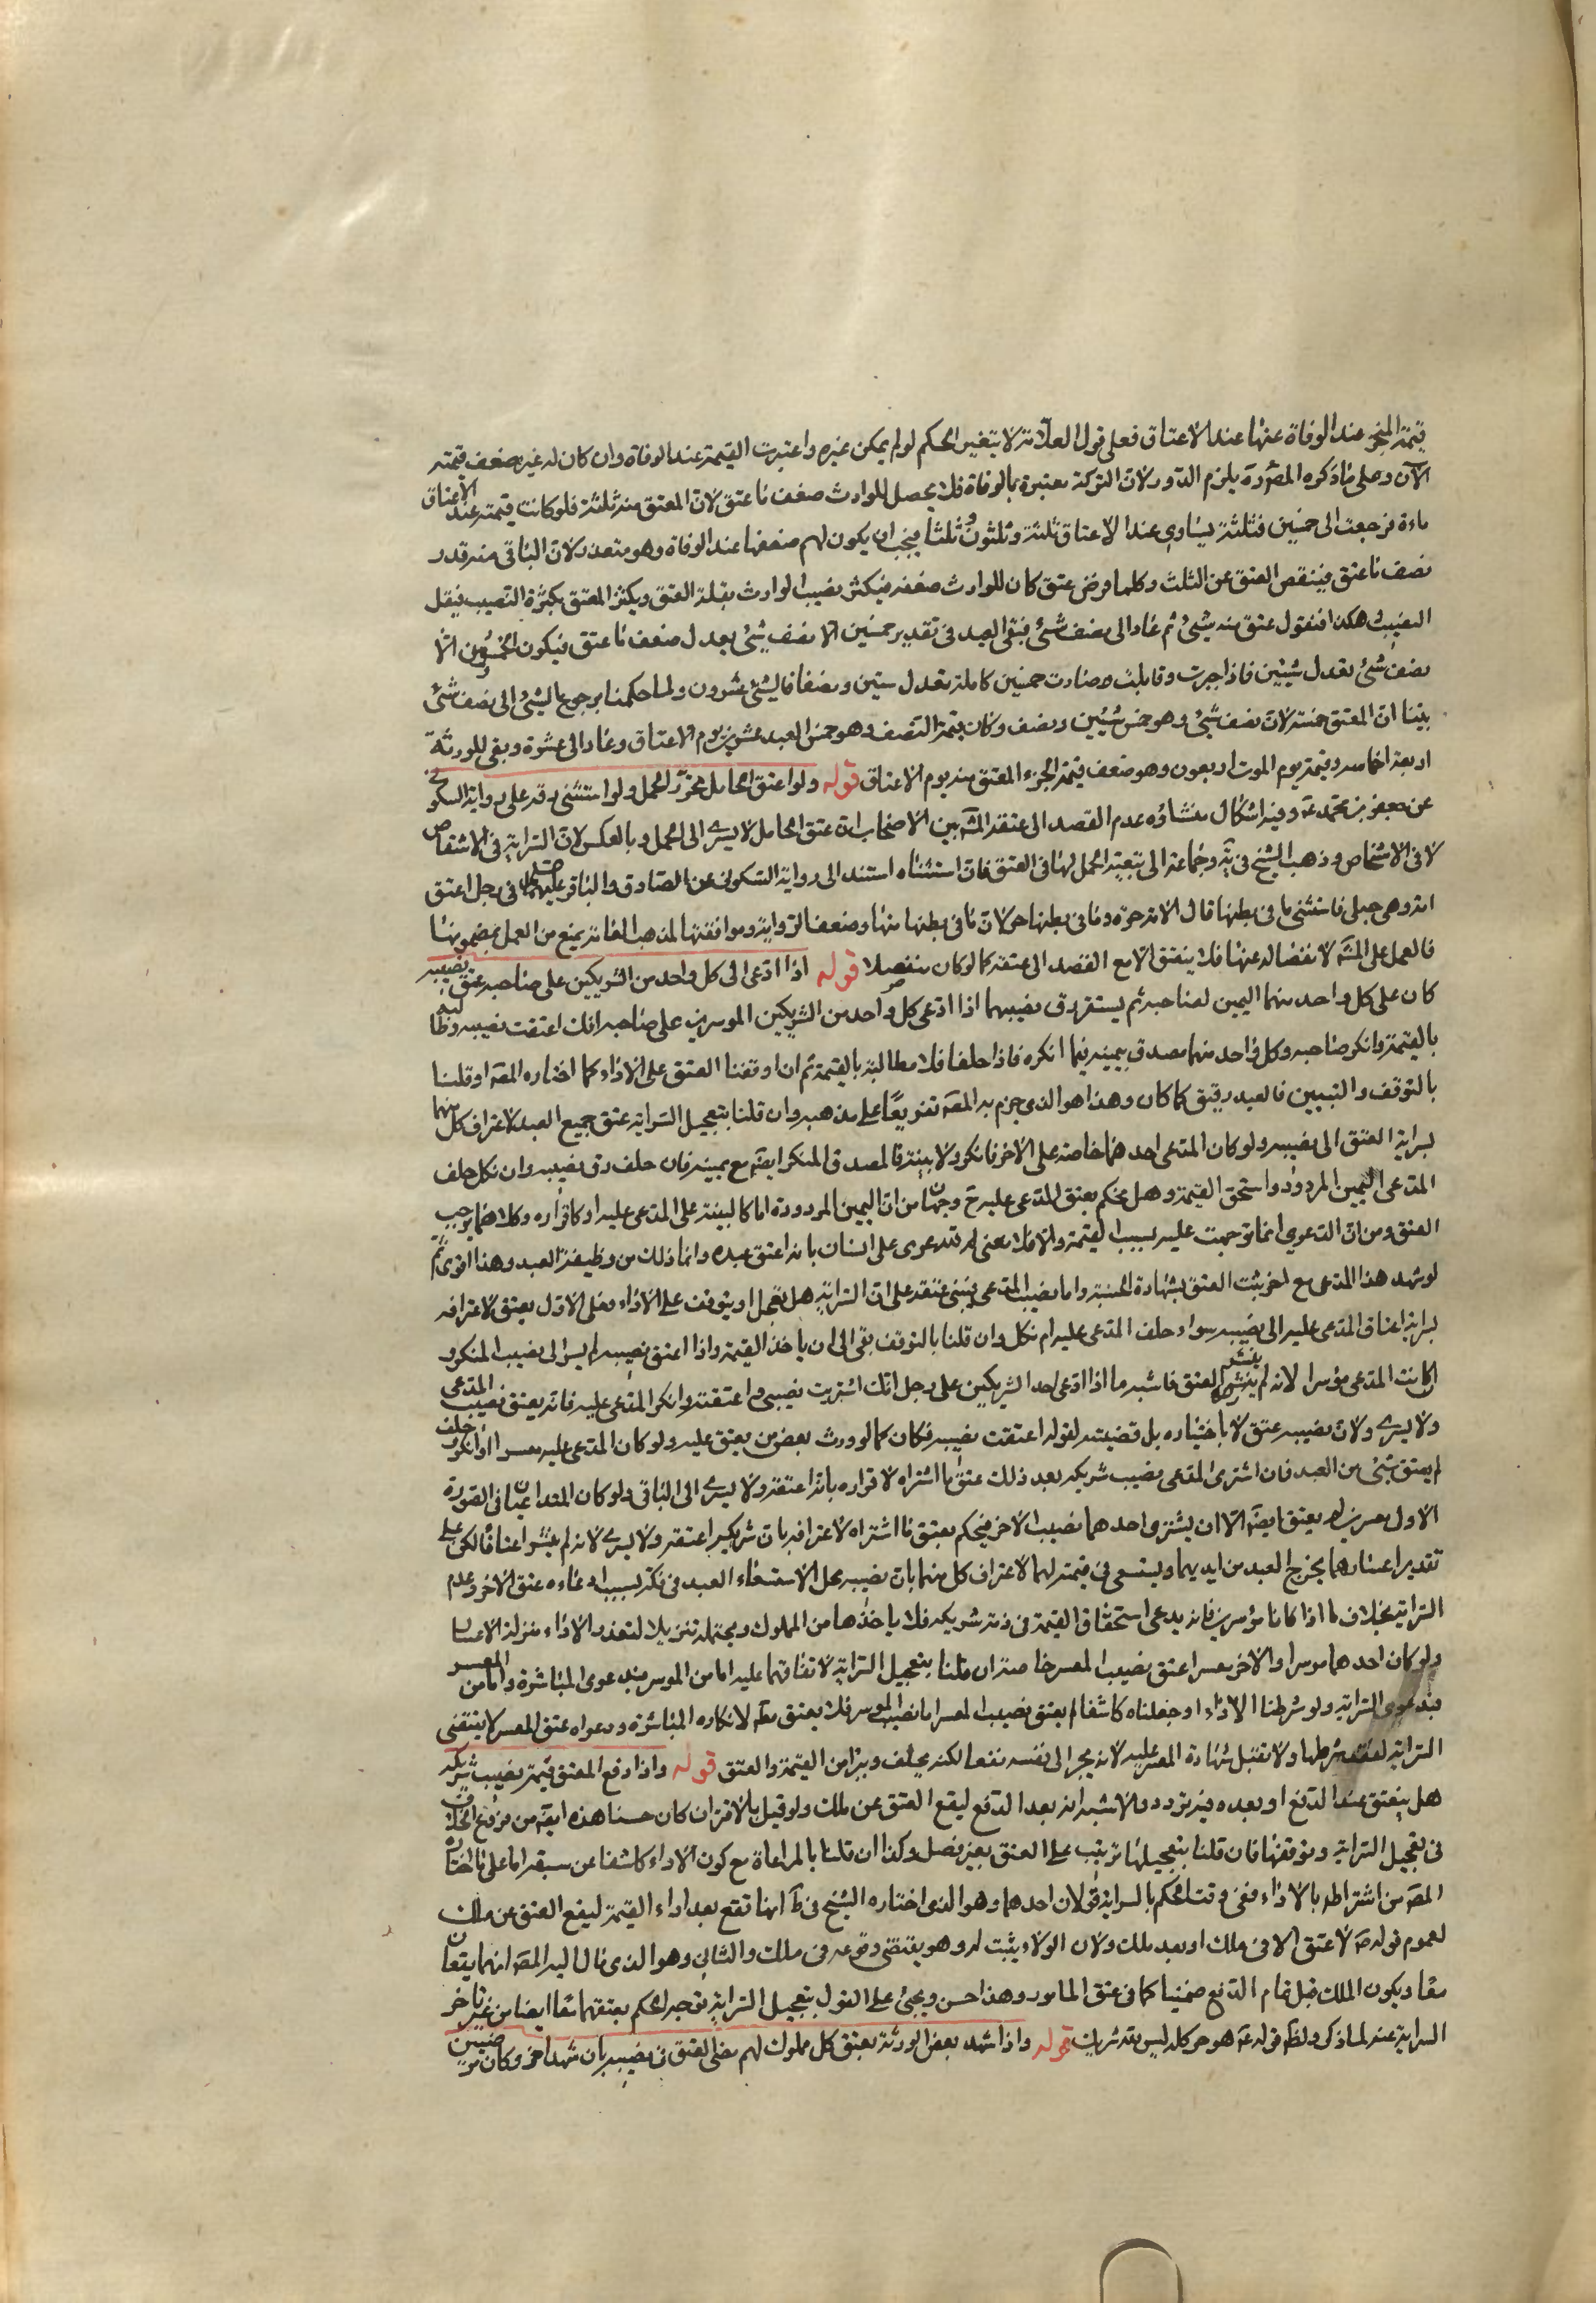 قيمة المنجز عند الوفاة عنها عند الاعتاق فعلى قول العلامة لا يتغير الحكم لو لم يمكن غيره واعتبرت القيمة عند الوفاة وان كان له غير بضعف قيمته
الآن وعلى ما ذكره المصره يلزم الدور لان التركة معتبرة بالوفاة فلا يحصل للوارث ضعف ما عتق لان المعتق منه ثلثه فلو كانت قيمته عند الاعتاق
ماءة فرجعت الى خمسين فثلثه يساوي عند الاعتاق ثلثة وثلثون وثلثا فيجب ان يكون لهم ضعفها عند الوفاة وهو متعذر لان الباقى منه قدر
نصف ما عتق فينقص العتق عن الثلث وكلما فرض عتق كان للوارث ضعفه فيكثر نصيب الوارث بقلة العتق ويكثر المعتق بكثرة النصيب فيقل
النصيب هكذا فنقول عتق منه شئ ثم عاد الى نصف شئ فبقى العبد فى تقدير خمسين الا نصف شئ يعدل ضعف ما عتق فيكون الخمسون الا
نصف شئ تعدل شيئين فاذا جبرت وقابلت صارت خمسين كاملة تعدل شيئين ونصفا فالشئ عشرون ولما حكمنا برجوع الشئ الى نصف شئ
بيننا ان المعتق خمسه لان نصف شئ هو خمس شيئين ونصف وكان قيمة النصف وهو خمس العبد عشرين يوم الاعتاق وعاد الى عشرة وبقى للورثة
اربعة اخماسه وقيمته يوم الموت اربعون وهو ضعف قيمة الجزء المعتق منه يوم الاعتاق قوله ولو اعتق الحامل تحرر الحمل ولو استثنى رقه على رواية السكونى
عن جعفر بن محمد عه وفيه اشكال منشاؤه عدم القصد الى عتقه المشه بين الاصحاب ان عتق الحامل لا يسرى الى الحمل وبالعكس لان السراية فى الاشقاص
لا فى الاشخاص وذهب الشيخ فى يه وجماعة الى تبعية الحمل لها فى العتق فان استثناه استند الى رواية السكونى عن الصادق والباقر عليهما فى رجل اعتق
امته وهى حبلى فاستثنى ما فى بطنها قال الامة حرة وما فى بطنها حر لان ما فى بطنها منها وضعف الرواية وموافقتها لمذهب العامة يمنع من العمل بمضمونها
فالعمل على المشه لانفصاله عنها فلا ينعتق الا مع القصد الى عتقه كما لو كان منفصلا قوله اذا ادعى الى كل واحد من الشريكين على صاحبه عتق نصيبه
كان على كل واحد منهما اليمين لصاحبه ثم يستقر رق نصيبهما اذا ادعى كل واحد من الشريكين الموسرين على صاحبه انك اعتقت نصيبه وطالبه
بالقيمة وانكر صاحبه وكل واحد منهما مصدق بيمينه فيما انكره فاذا حلفا فلا مطالبة بالقيمة ثم ان اوقفنا العتق على الاداء كما اختاره المصه او قلنا
بالتوقف والتبيين فالعبد رقيق كما كان وهذا هو الذى جزم به المصه تفريعا على مذهبه وان قلنا بتعجيل السراية عتق جميع العبد لاعتراف كل منهما
بسراية العتق الى نصيبه ولو كان المدعى احدهما خاصة على الآخر فانكر ولا بينة فالمصدق المنكر ايضه مع يمينه فان حلف رق نصيبه وان نكل حلف
المدعى اليمين المردود واستحق القيمة وهل يحكم بعتق المدعى عليه ح وجهان من ان اليمين المردودة اما كالبينة على المدعى عليه او كاقراره وكلاهما يوجب
العتق ومن ان الدعوى انما توجهت عليه بسبب القيمة والا فلا معنى له تدعوى على انسان بانه اعتق عبده وانما ذلك من وظيفة العبد وهذا اقوى ثم
لو شهد هذا المدعى مع اخر يثبت العتق بشهادة الحسبة واما نصيب المدعى فيبنى عتقه على ان السراية هل تعجل او يتوقف على الاداء فعلى الاول يعتق لاعترافه
بسراية اعتاق المدعى عليه الى نصيبه سواء حلف المدعى عليه ام نكل وان قلنا بالتوقف بقى الى ان ياخذ القيمة واذا اعتق نصيبه لم يسر الى نصيب المنكر و
ان كانت المدعى موسرا لانه لم ينشئ العتق فاشبه ما اذا ادعى احد الشريكين على رجل انك اشتريت نصيبى واعتقته وانكر المدعى عليه فانه يعتق نصيب المدعى
ولا يسرى ولان نصيبه عتق لا باختياره بل قضيته لقوله اعتقت نصيبه فكان كما لو ورث بعض من يعتق عليه ولو كان المدعى عليه معسرا وانكر وحلف
لم يعتق شئ من العبد فان اشترى المدعى نصيب شريكه بعد ذلك عتق ما اشتراه لاقراره بانه اعتقه ولا يسرى الى الباقى ولو كان المتداعيان فى الصورة
الاولى معسرين لم يعتق ايضه الا ان يشترى احدهما نصيب الآخر فيحكم بعتق ما اشتراه لاعترافه بان شريكه اعتقه ولا يسرى لانه لم ينشئ اعتاقا لكن على
تقدير اعسارهما يخرج العبد من ايديهما ويستسعى فى قيمته لهما لاعتراف كل منهما بان نصيبه محل الاستسعاء العبد فى فكه بسبب ادعاءه عتق الآخر وعدم
السراية بخلاف ما اذا كانا موسرين فانه يدعى استحقاق القيمة فى ذمة شريكه فلا ياخذها من المملوك ويحتمله تنزيلا لتعذر الاداء منزلة الاعسار
ولو كان احدهما موسرا والآخر معسرا عتق نصيب المعسر خاصة ان قلنا بتعجيل السراية لاتفاقهما عليه اما من الموسر فبدعوى المباشرة واما من المعسر
فبدعوى السراية ولو شرطنا الاداء او جعلناه كاشفا لم يعتق نصيب المعسر اما نصيب الموسر فلا يعتق معه لانكاره المباشرة ودعواه عتق المعسر لا يقتضى
السراية لفقد شرطها ولا تقبل شهادة المعسر عليه لانه يجر الى نفسه نفعا لكنه يحلف ويبرا من القيمة والعتق قوله واذا دفع المعتق قيمة نصيب شريكه
هل ينعتق عند الدفع او بعده فيه تردد والاشبه انه بعد الدفع ليقع العتق عن ملك ولو قيل بالاقتران كان حسنا هذه ايضه من فروع الخلاف
فى تعجيل السراية وتوقفها فان قلنا بتعجيلها ترتب على العتق بغير فصل وكذا ان قلنا بالمراعاة مع كون الاداء كاشفا عن سبقه اما على ما اختاره
المصه من اشتراطه بالاداء ففى وقت الحكم بالسراية قولان احدهما وهو الذى اختاره الشيخ فى ط انها تقع بعد اداء القيمة ليقع العتق عن ملك
لعموم قوله صه لا عتق الا فى ملك او بعد ملك ولان الولاء يثبت له وهو يقتضى وقوعه فى ملك والثانى وهو الذى مال اليه المصه انهما يقعان
معا ويكون الملك قبل تمام الدفع ضمنيا كما فى عتق المامور وهذا حسن ويجئ على القول بتعجيل السراية توجيه الحكم بعتقهما معا ايضا من غير تاخر
السراية عنه لما ذكر ولظه قوله عه هو حر كله ليس لله شريك قوله واذا شهد بعض الورثة بعتق كل مملوك لهم مضى العتق فى نصيبه بان شهد اخر وكان مرضيين